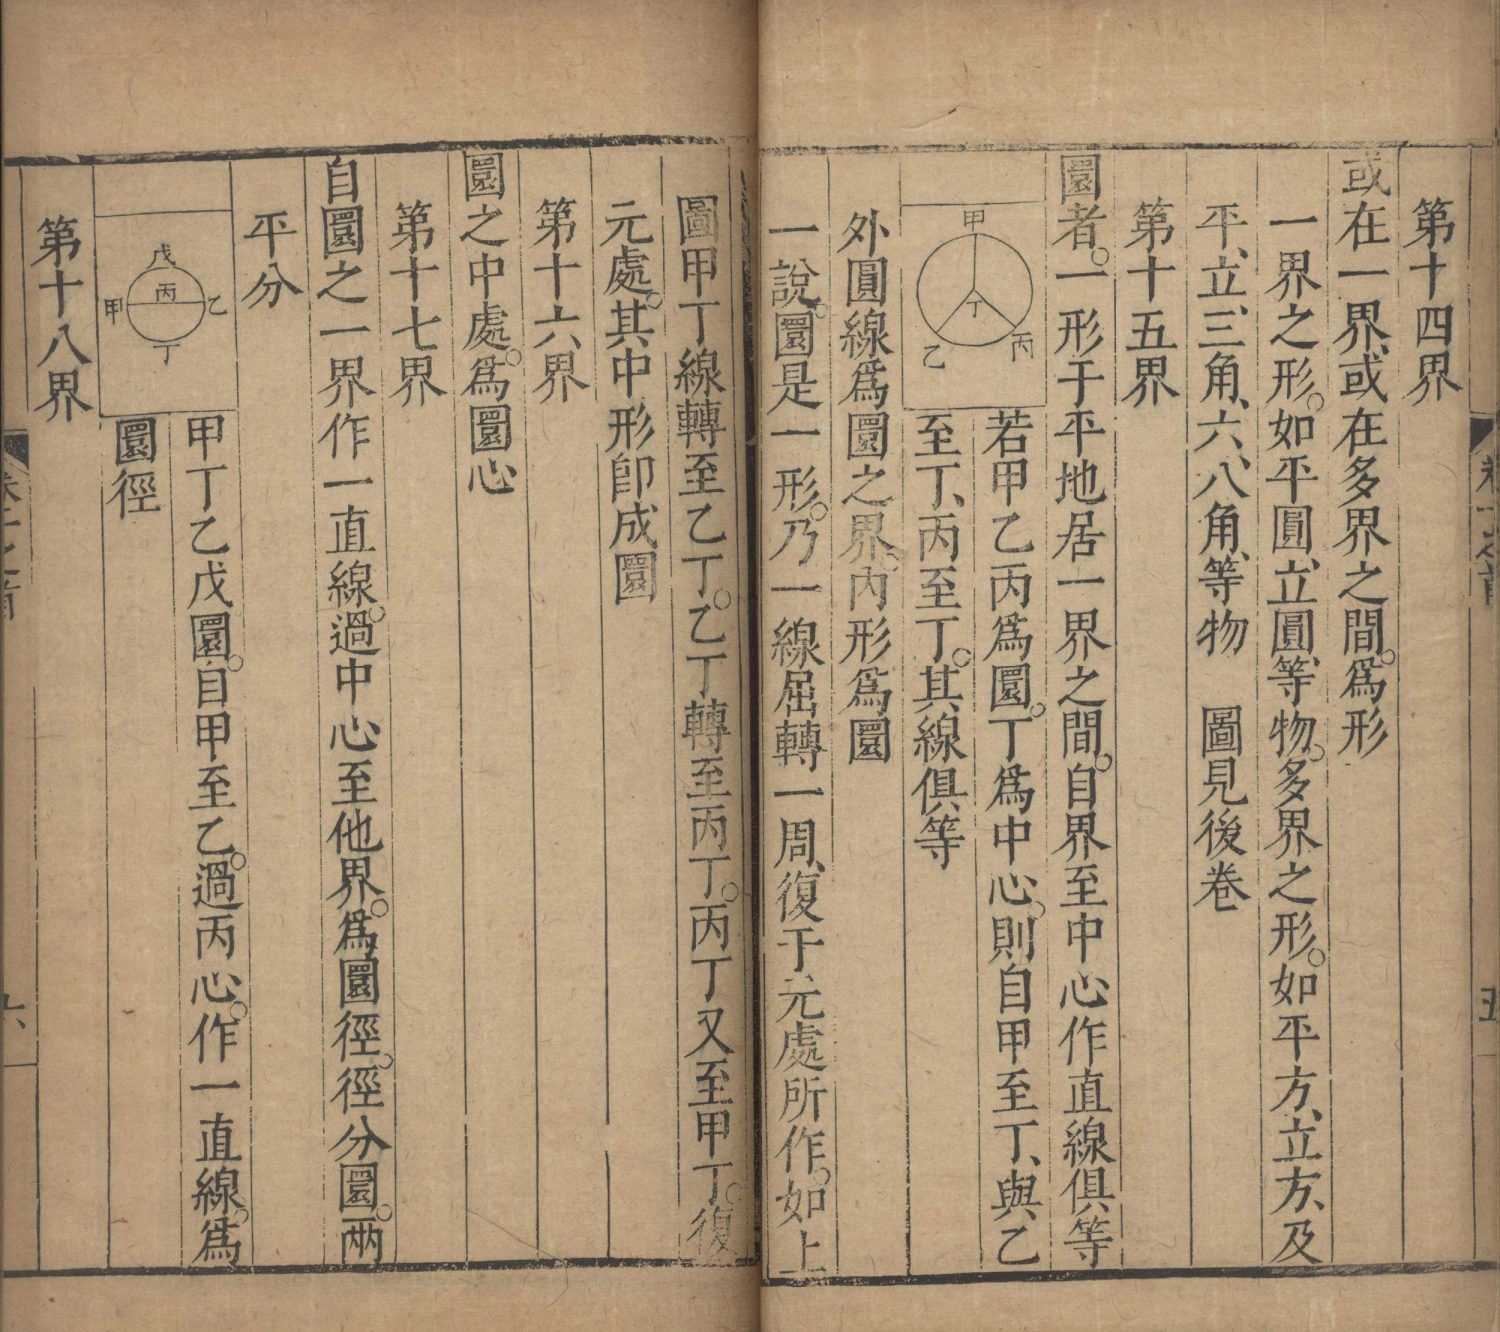 第十四界
或在一界、或在多界之間。爲形
一界之形。如平圓、立圓、等物。多界之形。如平方、立方、及
平、立、三角、六、八角、等物　圖見後卷
第十五界
圜者。一形于平地居一界之間。自界至中心作直線俱等
甲
丁
乙
丙
若甲乙丙爲圜。丁爲中心。則自甲至丁、與乙
至丁、丙至丁。其線俱等
外圓線爲圜之界。內形爲圜
一說。圜是一形。乃一線屈轉一周、復于元處所作。如上
圖甲丁線轉至乙丁。乙丁轉至丙丁。丙丁又至甲丁。復
元處。其中形卽成圜
第十六界
圜之中處。爲圜心
第十七界
自圜之一界作一直線。過中心至他界。爲圜徑。徑分圜。兩
平分
戊
丙
甲
乙
丁
甲丁乙戊圜。自甲至乙。過丙心。作一直線。爲
圜徑
第十八界
六